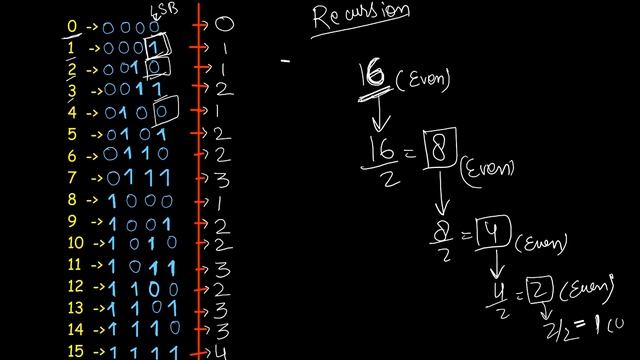 LSB
0 -> 0 0 0 0 → 0
1 -> 0 0 0 1 → 1
2 -> 0 0 1 0 → 1
3 -> 0 0 1 1 → 2
4 -> 0 1 0 0 → 1
5 -> 0 1 0 1 → 2
6 -> 0 1 1 0 → 2
7 -> 0 1 1 1 → 3
8 -> 1 0 0 0 → 1
9 -> 1 0 0 1 → 2
10 -> 1 0 1 0 → 2
11 -> 1 0 1 1 → 3
12 -> 1 1 0 0 → 2
13 -> 1 1 0 1 → 3
14 -> 1 1 1 0 → 3
15 -> 1 1 1 1 → 4
Recursion
16 (Even)
16/2 = 8 (Even)
8/2 = 4 (Even)
4/2 = 2 (Even)
2/2 = 1 (0